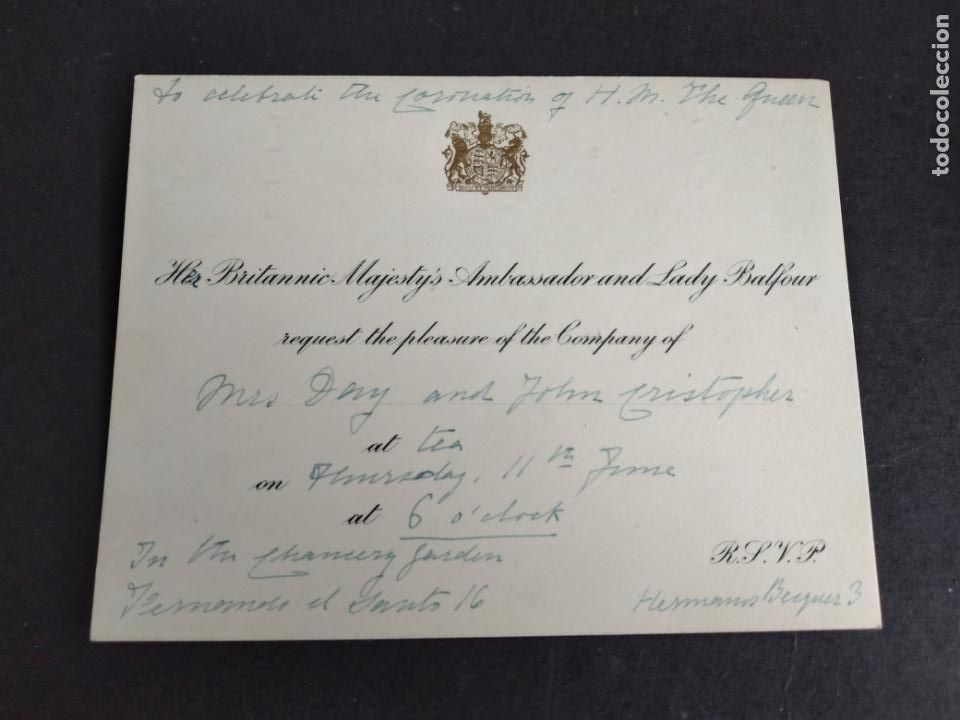 To celebrate the Coronation of H.M. The Queen
Her Britannic Majesty's Ambassador and Lady Balfour
request the pleasure of the Company of
Mrs Day and John Cristopher
at tea
on Thursday, 11th June
at 6 o'clock
In the Chancery Garden
R.S.V.P.
Fernando el Santo 16
Hermanos Becquer 3
todocoleccion